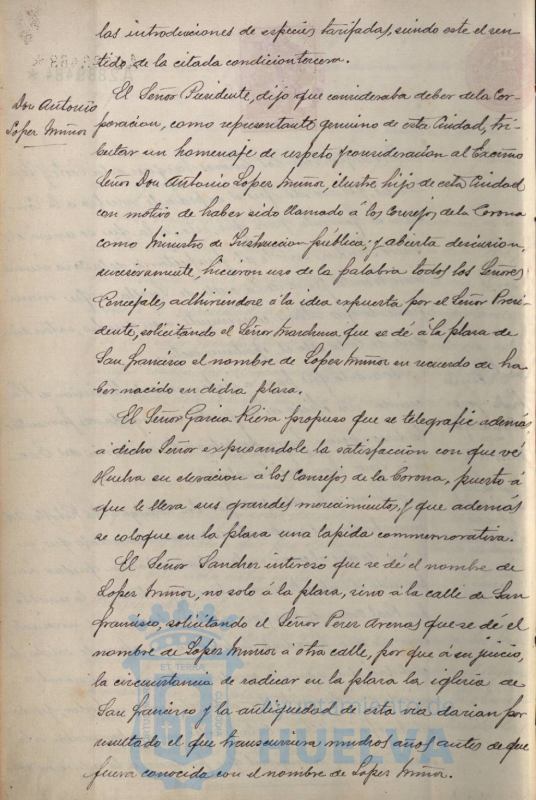 las introducciones de especies tarifadas, siendo este el sen-
tido de la citada condicion tercera.
Don Antonio
Lopez Muñoz
El Señor Presidente, dijo que consideraba deber de la Cor-
poracion, como representante genuino de esta Ciudad, tri-
butar un homenaje de respeto y consideracion al Excmo
Señor Don Antonio Lopez Muñoz, ilustre hijo de esta Ciudad
con motivo de haber sido llamado á los Consejos de la Corona
como Ministro de Instruccion pública; y abierta discusion,
sucesivamente, hicieron uso de la palabra todos los Señores
Concejales adhiriendose á la idea expuesta por el Señor Presi-
dente, solicitando el Señor Marchena que se dé á la plaza de
San Francisco el nombre de Lopez Muñoz en recuerdo de ha-
ber nacido en dicha plaza.
El Señor Garcia Riera propuso que se telegrafie además
á dicho Señor expresandole la satisfaccion con que vé
Huelva su elevacion á los Consejos de la Corona, puesto á
que le lleva sus grandes merecimientos, y que además
se coloque en la plaza una lapida conmemorativa.
El Señor Sanchez interesó que se dé el nombre de
Lopez Muñoz, no solo á la plaza, sino á la calle de San
Francisco, solicitando el Señor Perez Arenas que se dé el
nombre de Lopez Muñoz á otra calle, por que á su juicio,
la circunstancia de radicar en la plaza la iglesia de
San Francisco y la antiguedad de esta via darian por
resultado el que transcurriera muchos años antes de que
fuera conocida con el nombre de Lopez Muñoz.
HUELVA